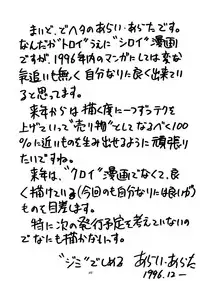 まいど、でヘタのあらい・あらたです。
なんだか"トロイ"うえに"シロイ"漫画
ですが、1996年内のマンガにしては変な
気追いも無く自分なりに良く出来てい
ると思ってます。
来年からは描く度に一つずつテクを
上げていって"売り物"としてなるべく100
％に近いものを生み出せるように頑張り
たいですね。
来年は、"クロイ"漫画でなくて、良
く描けている(今回のも自分なりには良いが)
ものを目差します。
特に次の発行予定を考えていないの
でなにも描かないっす。
"ジミ"でしめる あらい・あらた
1996.12